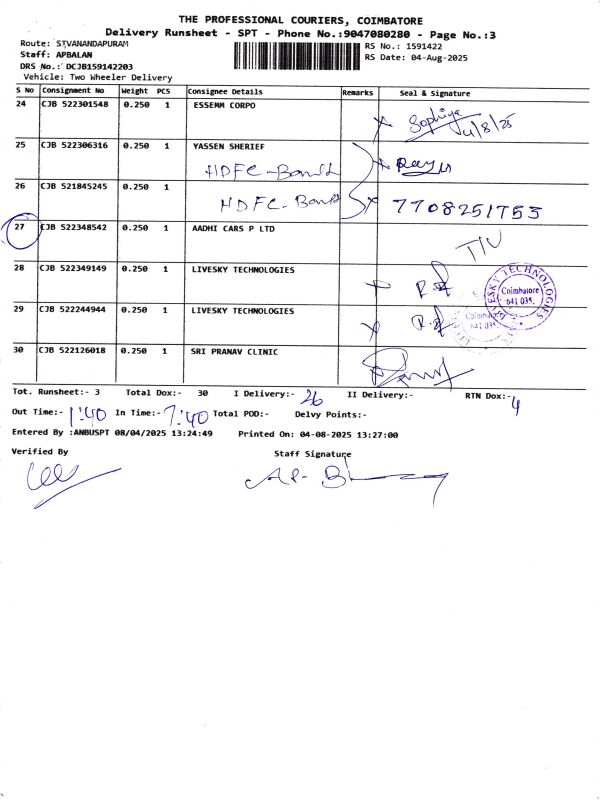 THE PROFESSIONAL COURIERS, COIMBATORE
Delivery Runsheet - SPT - Phone No.:9047080280 - Page No.:3
Route: SIVANANDAPURAM
RS No.: 1591422
Staff: APBALAN
RS Date: 04-Aug-2025
DRS No.: DCJB159142203
Vehicle: Two Wheeler Delivery
S No Consignment No Weight PCS Consignee Details Remarks Seal & Signature
24 CJB 522301548 0.250 1 ESSEMM CORPO
Sophiya
4/8/25
25 CJB 522306316 0.250 1 YASSEN SHERIEF
HDFC-Bank
26 CJB 521845245 0.250 1
HDFC-Bank
7708251753
27 CJB 522348542 0.250 1 AADHI CARS P LTD
28 CJB 522349149 0.250 1 LIVESKY TECHNOLOGIES
LIVESKY TECHNOLOGIES
Coimbatore
641 035.
29 CJB 522244944 0.250 1 LIVESKY TECHNOLOGIES
Coimbatore
641 035
30 CJB 522126018 0.250 1 SRI PRANAV CLINIC
Tot. Runsheet:- 3 Total Dox:- 30 I Delivery:- 26 II Delivery:- RTN Dox:- 4
Out Time:- 1:40 In Time:- 7:40 Total POD:- Delvy Points:-
Entered By :ANBUSPT 08/04/2025 13:24:49 Printed On: 04-08-2025 13:27:00
Verified By Staff Signature